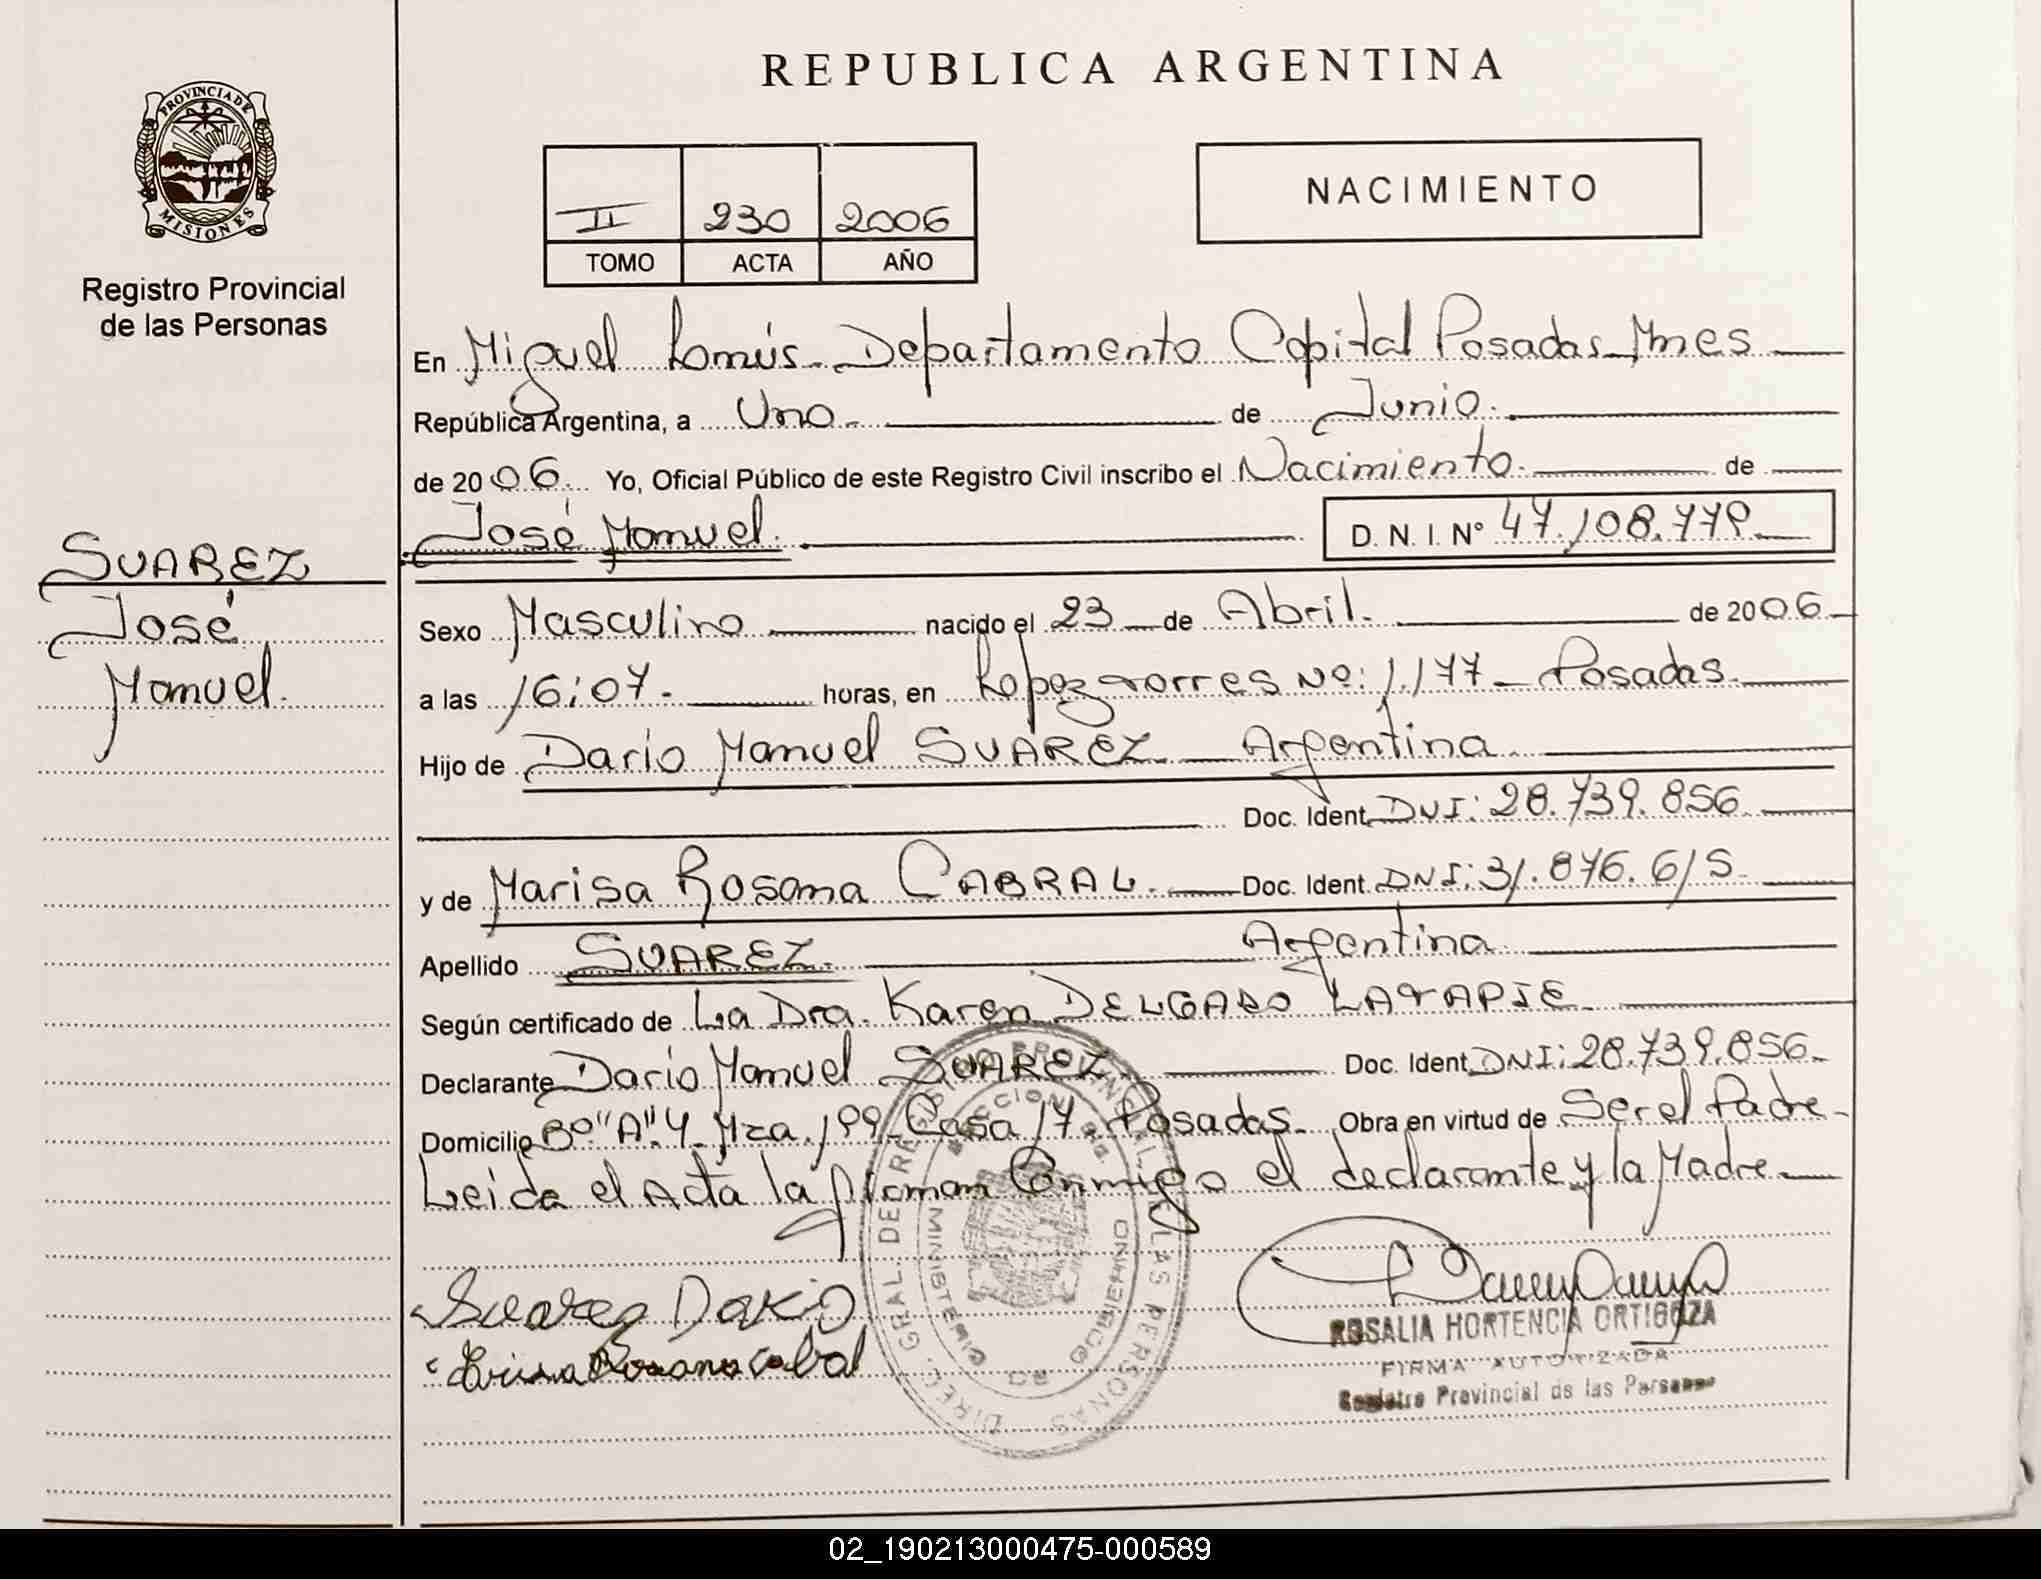 REPUBLICA ARGENTINA
PROVINCIA DE
MISIONES
Registro Provincial
de las Personas
NACIMIENTO
II 230 2006
TOMO ACTA AÑO
En Miguel Lanús - Departamento Capital Posadas Mnes
República Argentina, a Uno. de Junio.
de 2006. Yo, Oficial Público de este Registro Civil inscribo el Nacimiento. de
José Manuel. D. N. I. Nº 47.108.779
SUAREZ
José
Manuel.
Sexo Masculino nacido el 23 de Abril. de 2006
a las 16:07. horas, en Lopez Torres Nº: 1.177 - Posadas.
Hijo de Dario Manuel SUAREZ. Argentina.
Doc. Ident. DNI: 28.739.856
y de Marisa Rosana CABRAL. Doc. Ident. DNI: 31.876.615
Apellido SUAREZ. Argentina.
Según certificado de La Dra. Karen DELGADO LATAPIE
Declarante Dario Manuel SUAREZ. Doc. Ident. DNI: 28.739.856
Domicilio Bº "A" 4. Mza. 199 - Casa 17 - Posadas. Obra en virtud de Ser el Padre
Leida el Acta la firman Conmigo el declarante y la Madre
Suarez Dario
Rosana Cabral
DIREC. GRAL. DE REGISTRO PROVINCIAL DE LAS PERSONAS
MINISTERIO DE GOBIERNO
ROSALIA HORTENCIA ORTIGOZA
FIRMA AUTORIZADA
Registro Provincial de las Personas
02_190213000475-000589